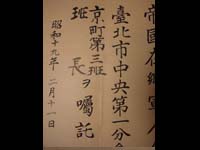 帝國在鄉軍人
臺北市中央第一分會
京町第三班
班長ヲ囑託
昭和十九年 二月十一日